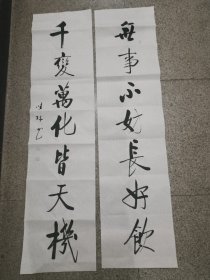 無事不妨長好飲
千變萬化皆天機